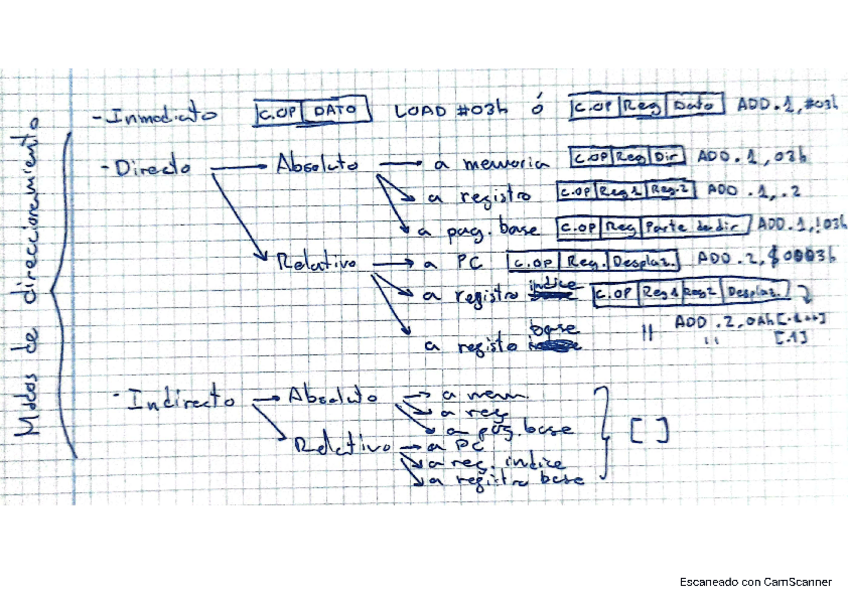 Modos de direccionamiento
- Inmediato C.OP DATO LOAD #03h ó C.OP Reg Dato ADD .1, #03h
- Directo → Absoluto → a memoria C.OP Reg Dir ADD .1, 03h
a registro C.OP Reg1 Reg.2 ADD .1, .2
a pag. base C.OP Reg Parte de dir ADD .1, !03h
Relativo → a PC C.OP Reg. Desplaz. ADD .2, $0003h
a registro indice C.OP Reg1 Reg2 Desplaz.
ADD .2, 0Ah[.1++]
a registo base " " [.1]
- Indirecto → Absoluto → a mem
a reg
a pag. base
Relativo → a PC
a reg. indice
a registro base
[ ]
Escaneado con CamScanner